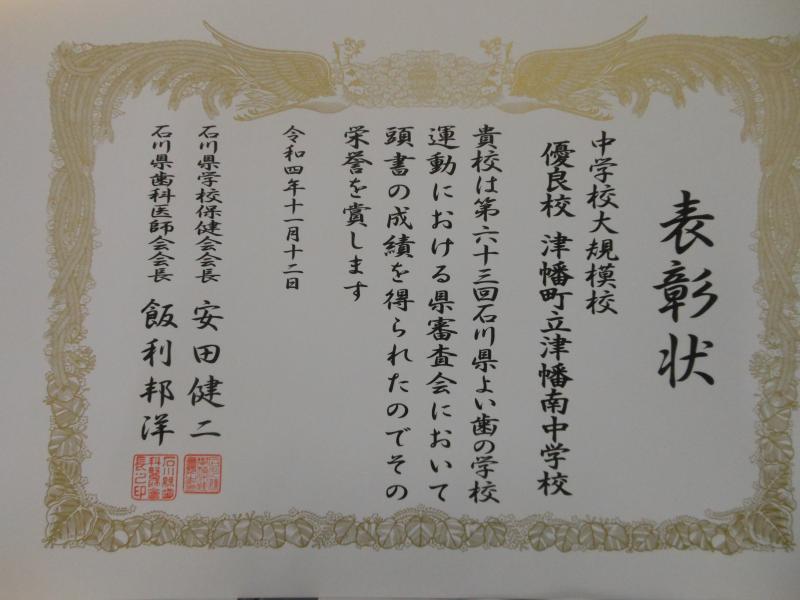 表彰状
中学校大規模校
優良校 津幡町立津幡南中学校
貴校は第六十三回石川県よい歯の学校
運動における県審査会において
頭書の成績を得られたのでその
栄誉を賞します
令和四年十一月十二日
石川県学校保健会会長 安田健二
石川県歯科医師会会長 飯利邦洋